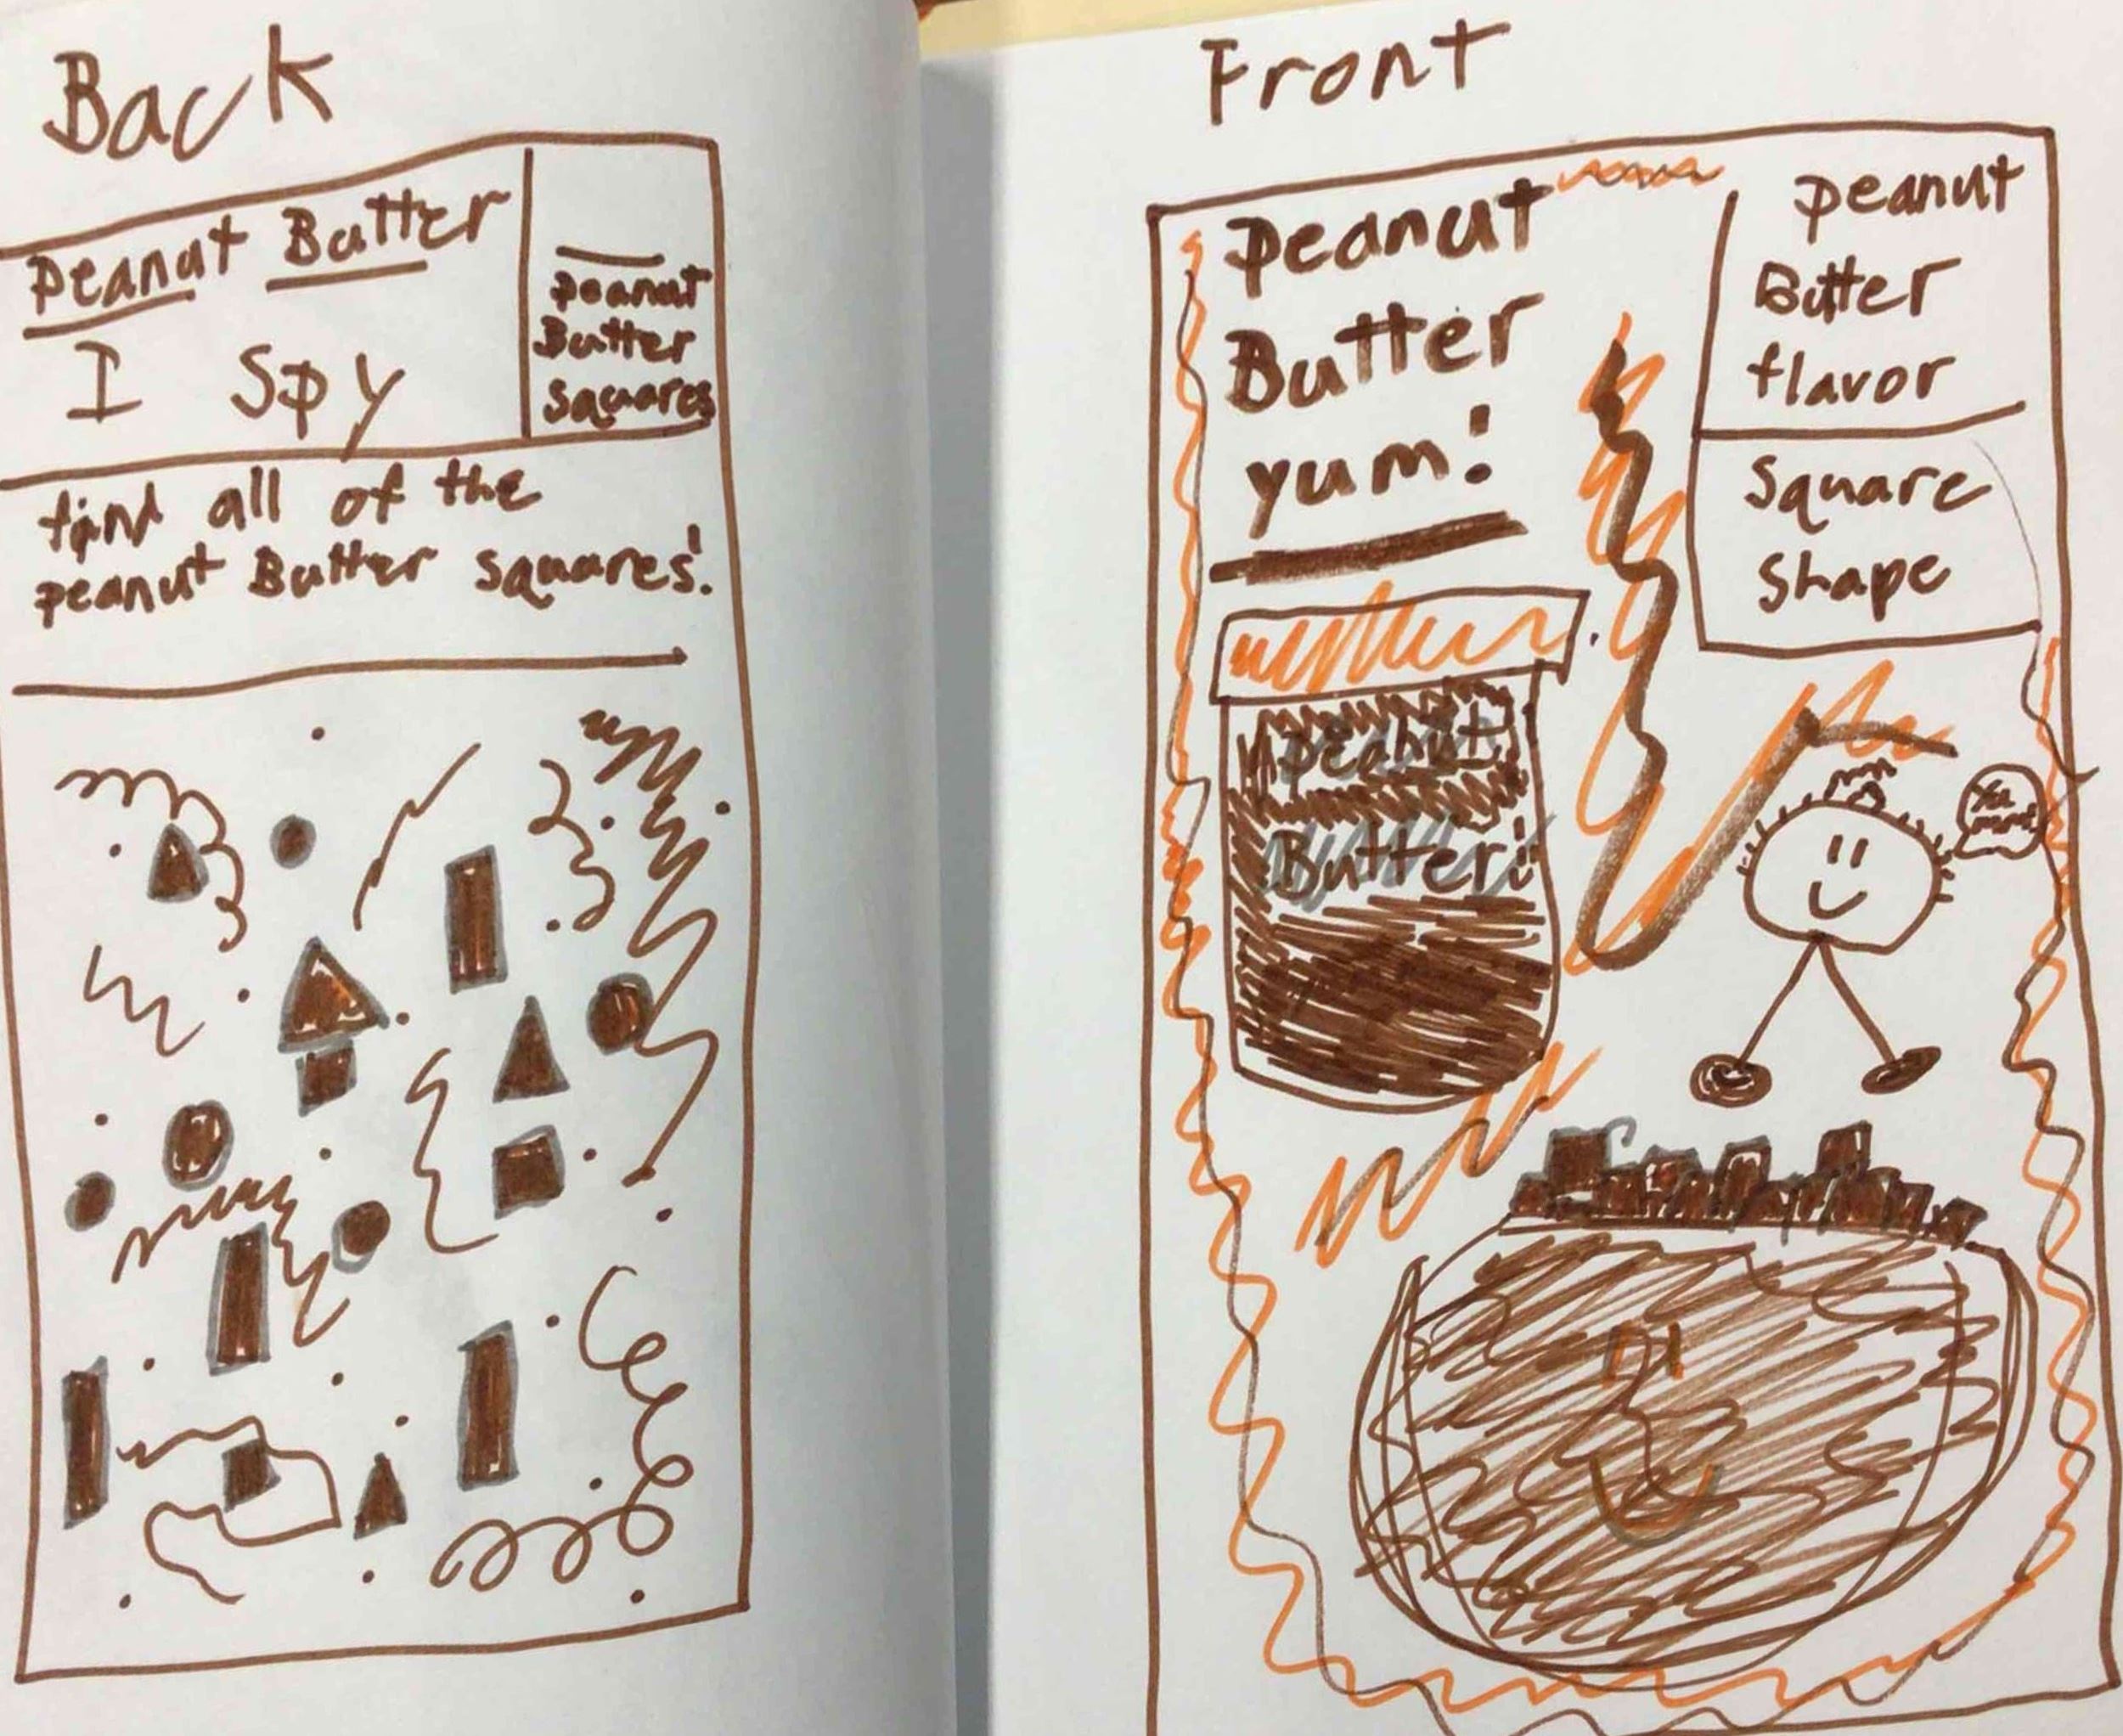 Back
Peanut Butter
I Spy
Peanut
Butter
squares
find all of the
peanut Butter squares!
Front
Peanut
Butter
yum!
Peanut
Butter
flavor
Square
Shape
Peanut
Butter!